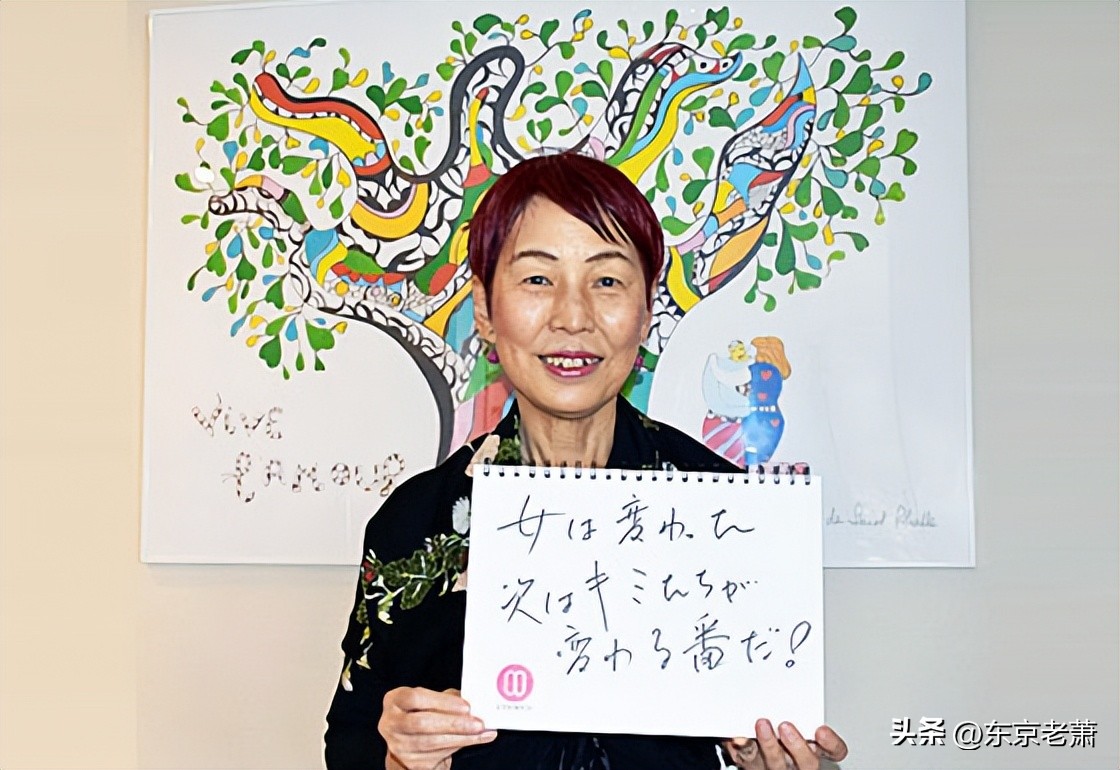 VIVE
L'AMOUR
女は変わった
次はキミたちが
変わる番だ!
de Saint Phalle
头条 @东京老萧